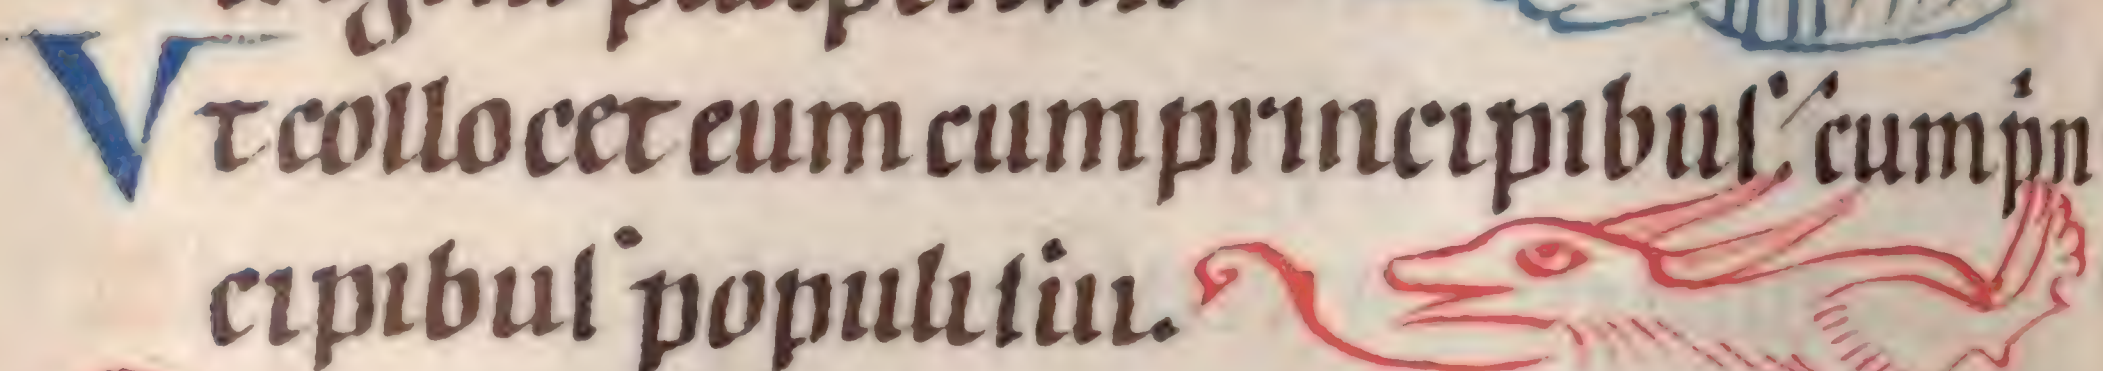 Vt collocet eum cum principibus: cum pⁱn
cipibus populi sui.